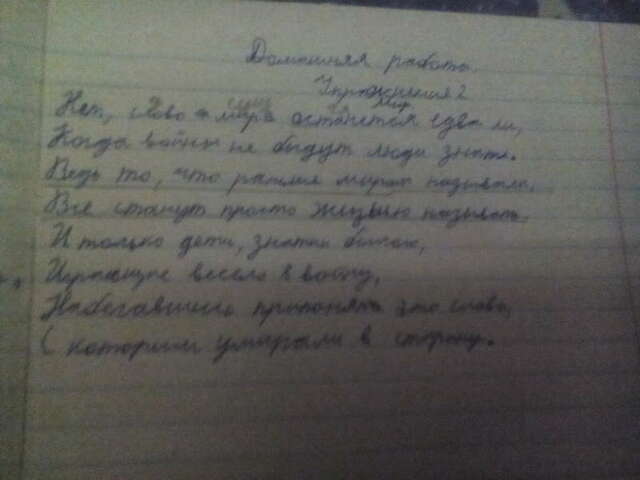 Домашняя работа.
Упражнение 2
Мир
Нет, слово мира останется едва ли,
Когда войны не будут люди знать.
Ведь то, что раньше миром называли,
Все станут просто жизнью называть.
И только дети, знатоки былого,
Играющие весело в войну,
Набегавшись припомнят это слово,
С которым умирали в старину.